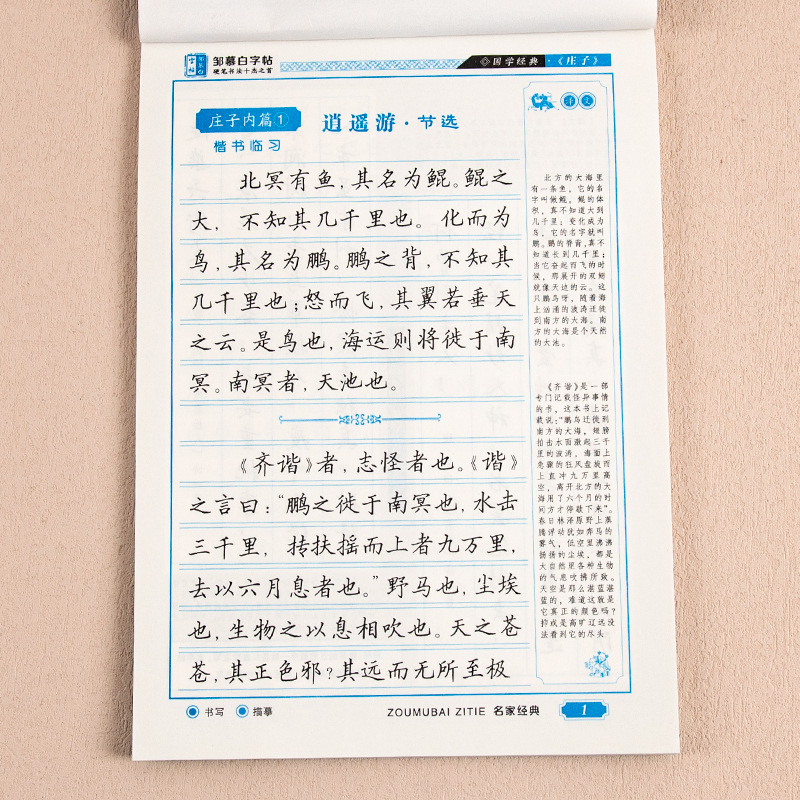 邹慕白字帖
硬笔书法十杰之首
国学经典·《庄子》
庄子内篇①
逍遥游·节选
楷书临习
北冥有鱼，其名为鲲。鲲之
大，不知其几千里也。化而为
鸟，其名为鹏。鹏之背，不知其
几千里也；怒而飞，其翼若垂天
之云。是鸟也，海运则将徙于南
冥。南冥者，天池也。
《齐谐》者，志怪者也。《谐》
之言曰：“鹏之徙于南冥也，水击
三千里，抟扶摇而上者九万里，
去以六月息者也。”野马也，尘埃
也，生物之以息相吹也。天之苍
苍，其正色邪？其远而无所至极
译文
北方的大海里
有一条鱼，它的名
字叫做鲲。鲲的体
积，真不知道大到
几千里；变化成为
鸟，它的名字就叫
鹏。鹏的脊背，真不
知道长到几千里；
当它奋起而飞的时
候，那展开的双翅
就像天边的云。这
只鹏鸟呀，随着海
上汹涌的波涛迁徙
到南方的大海。南
方的大海是个天然
的大池。
《齐谐》是一部
专门记载怪异事情
的书，这本书上记
载说：“鹏鸟迁徙到
南方的大海，翅膀
拍击水面激起三千
里的波涛，海面上
急骤的狂风盘旋而
上直冲九万里高
空，离开北方的大
海用了六个月的时
间方才停歇下来”。
春日林泽原野上蒸
腾浮动犹如奔马的
雾气，低空里沸沸
扬扬的尘埃，都是
大自然里各种生物
的气息吹拂所致。
天空是那么湛蓝湛
蓝的，难道这就是
它真正的颜色吗？
抑或是高旷辽远没
法看到它的尽头
书写 描摹
ZOUMUBAI ZITIE 名家经典 1